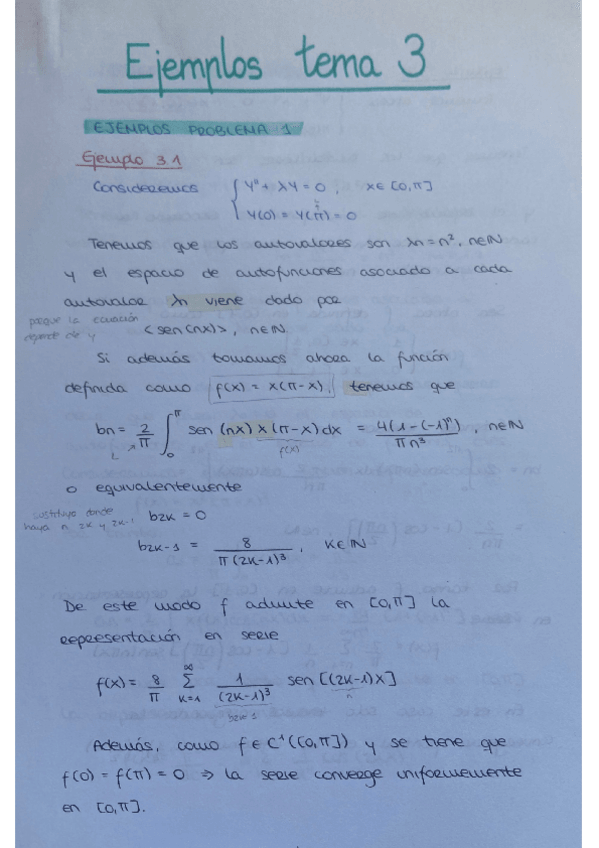 Ejemplos tema 3
EJEMPLOS PROBLEMA 1
Ejemplo 3.1
Consideremos { y'' + λy = 0 , x ∈ [0,π]
y(0) = y(π) = 0
Tenemos que los autovalores son λn = n², n∈ℕ
y el espacio de autofunciones asociado a cada
autovalor λn viene dado por
porque la ecuación
depende de y
<sen(nx)>, n∈ℕ.
Si además tomamos ahora la función
definida como f(x) = x(π-x), tenemos que
bn = 2/π ∫₀^π sen(nx) x(π-x) dx = 4(1-(-1)ⁿ)/(πn³) , n∈ℕ
L
f(x)
o equivalentemente
sustituyo donde
haya n 2k y 2k-1
b2k = 0
b2k-1 = 8/(π(2k-1)³) , k∈ℕ
De este modo f admite en [0,π] la
representación en serie
f(x) = 8/π ∑_{k=1}^∞ 1/(2k-1)³ sen[(2k-1)x]
n
Además, como f ∈ C¹([0,π]) y se tiene que
f(0) = f(π) = 0 ⇒ la serie converge uniformemente
en [0,π].